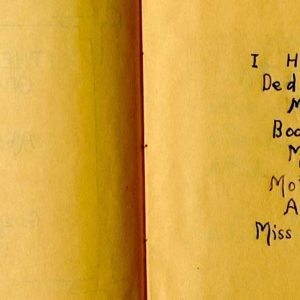 I H
Ded
M
Boo
M
Mot
A
Miss